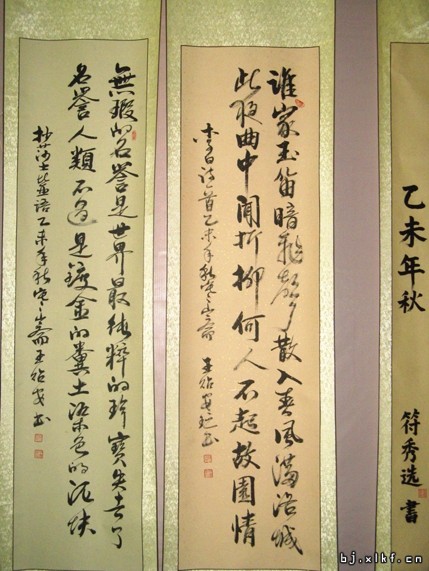 乙未年秋
符秀选 书
誰家玉笛暗飛聲散入春風滿洛城
此夜曲中聞折柳何人不起故園情
李白诗一首乙未年秋
無瑕的名譽是世界最純粹的珍寶失去了
名譽人類不過是鍍金的糞土染色的泥块
抄莎士比亚语乙未年秋
bj.xlkf.cn